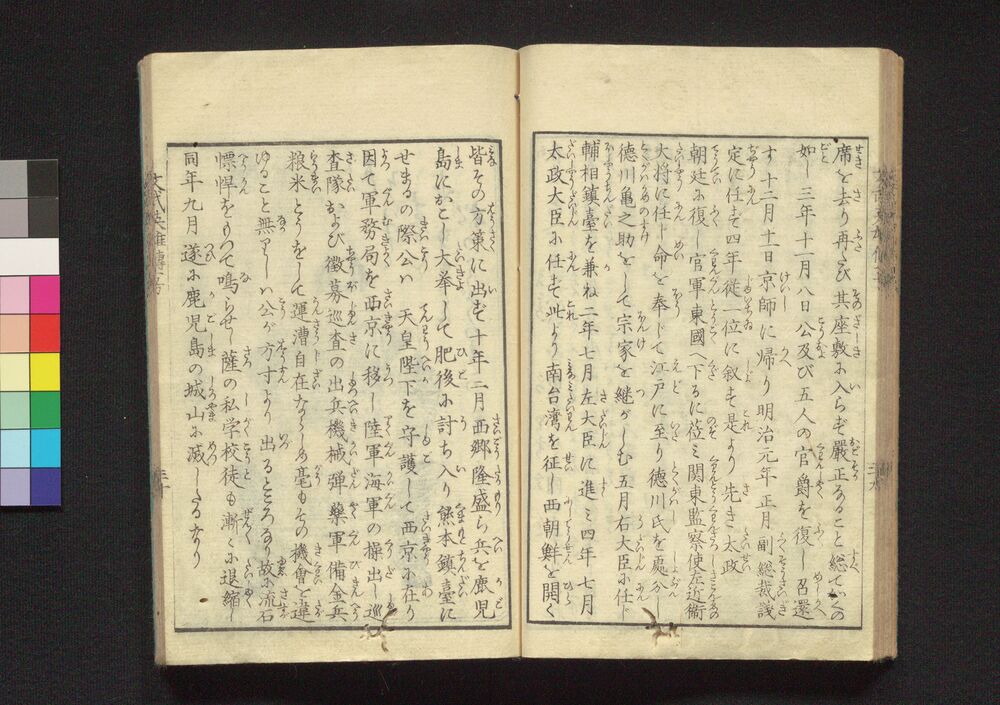 席を去り再たび其座敷に入らず嚴正なること総て此の
如し三年十一月八日公及び五人の官爵を復し召還
す十二月十二日京師に帰り明治元年正月副総裁議
定に任ず四年従一位に叙す是より先き太政
朝廷に復し官軍東國へ下るに莅ミ関東監察使左近衛
大将に任し命を奉じて江戸に至り徳川氏を處分し
徳川亀之助をして宗家を継がしむ五月右大臣に任じ
輔相鎮臺を兼ね二年七月左大臣に進ミ四年七月
太政大臣に任ず此より南台湾を征し西朝鮮を開く
皆その方策に出ず十年二月西郷隆盛ら兵を鹿児
島におこし大挙して肥後に討ち入り熊本鎮臺に
せまるの際公ハ 天皇陛下を守護して西京に在り
因て軍務局を西京に移し陸軍海軍の操出し巡
査隊および徴募巡査の出兵機械弾藥軍備金兵
粮米とうをして運漕自在ならしめ毫もその機會を違
ゆること無りしハ公が方寸より出るところなり故に流石
慓悍をもつて鳴らせし薩の私学校徒も漸くに退縮し
同年九月遂に鹿児島の城山に滅したるなり
文武英雄傳
三十